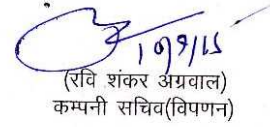 (रवि शंकर अग्रवाल)
कम्पनी सचिव(विपणन)